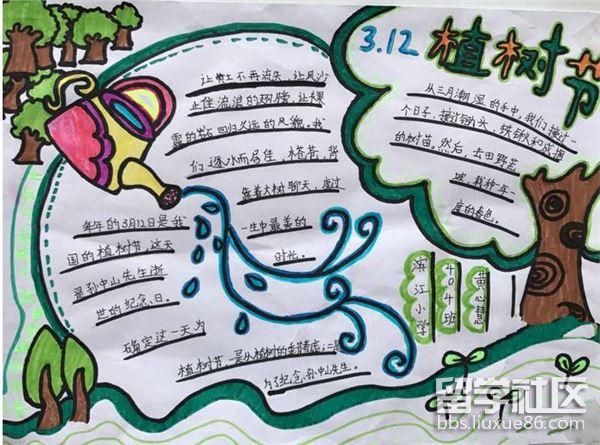 3.12 植树节
让黄土不再流失,让风沙
止住流浪的翅膀,让裸
露的岩石回归久远的风貌,我
们逐水而居住,搭茅,背
靠着大树聊天,度过
一生中最美的
时光。
从三月潮湿的手中,我们接过一
个日子,接过锄头、铁锹和皮桶
的树苗,然后,去田野荒
坡,栽种一年一
度的春色。
每年的3月12日是我
国的植树节,这天
是孙中山先生逝
世的纪念日。
确定这一天为
植树节,是从植树的季节考虑;二是
为了纪念孙中山先生。
滨江小学
404班
黄心慧
留学社区
bbs.liuxue86.com